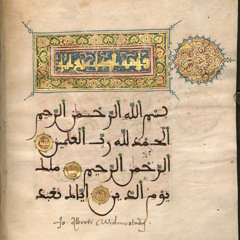 بسم الله الرحمن الرحيم
الحمد لله رب العلمين
الرحمن الرحيم ملك
يوم الدين اياك نعبد
Jo. Alberti Widmestadij